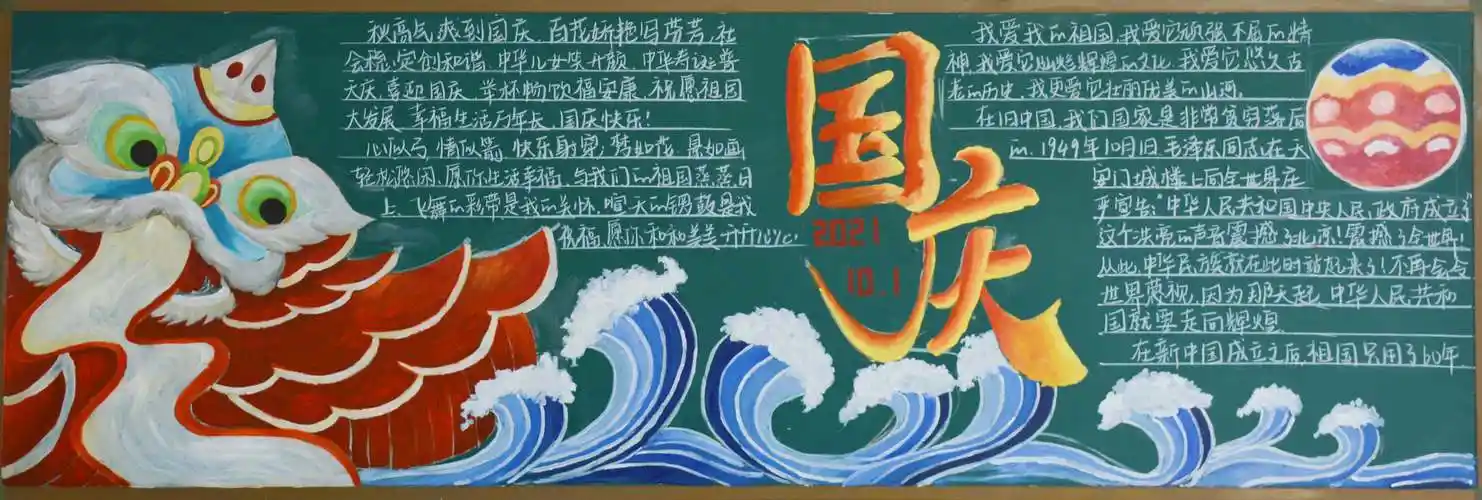 秋高气爽到国庆,百花娇艳吐芬芳,社
会稳定创和谐,中华儿女笑开颜,中华寿诞普
天庆,喜迎国庆,举杯畅饮福安康,祝愿祖国
大发展,幸福生活万年长,国庆快乐!
心似弓,情似箭,快乐射穿,梦如花,景如画
轻松悠闲,愿你生活幸福,与我们的祖国蒸蒸日
上,飞舞的彩带是我的关怀,喧天的锣鼓是我
祝福,愿你和和美美开开心心.
国庆
2021
10.1
我爱我的祖国,我爱它顽强不屈的精
神,我爱它灿烂辉煌的文化,我爱它悠久古
老的历史,我更爱它壮丽优美的山河.
在旧中国,我们国家是非常贫穷落后
的,1949年10月1日毛泽东同志在天
安门城楼上向全世界庄
严宣告:"中华人民共和国中央人民政府成立了"
这个洪亮的声音震撼了北京!震撼了全世界,
从此,中华民族就在此时站起来了!不再会令
世界蔑视,因为那天起,中华人民共和
国就要走向辉煌.
在新中国成立之后,祖国只用了60年